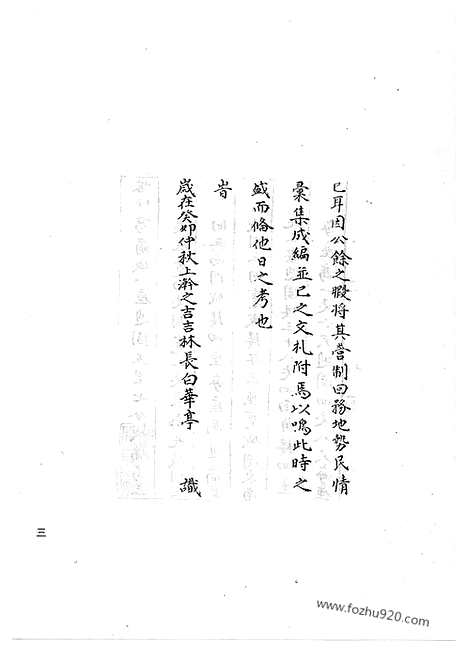 已耳因公餘之暇將其營制回務地勢民情
彙集成編並已之文札附焉以鳴此時之
盛而俻他日之考也
旹
歲在癸卯仲秋上澣之吉吉林長白華亭 識
三
www.fozhu920.com